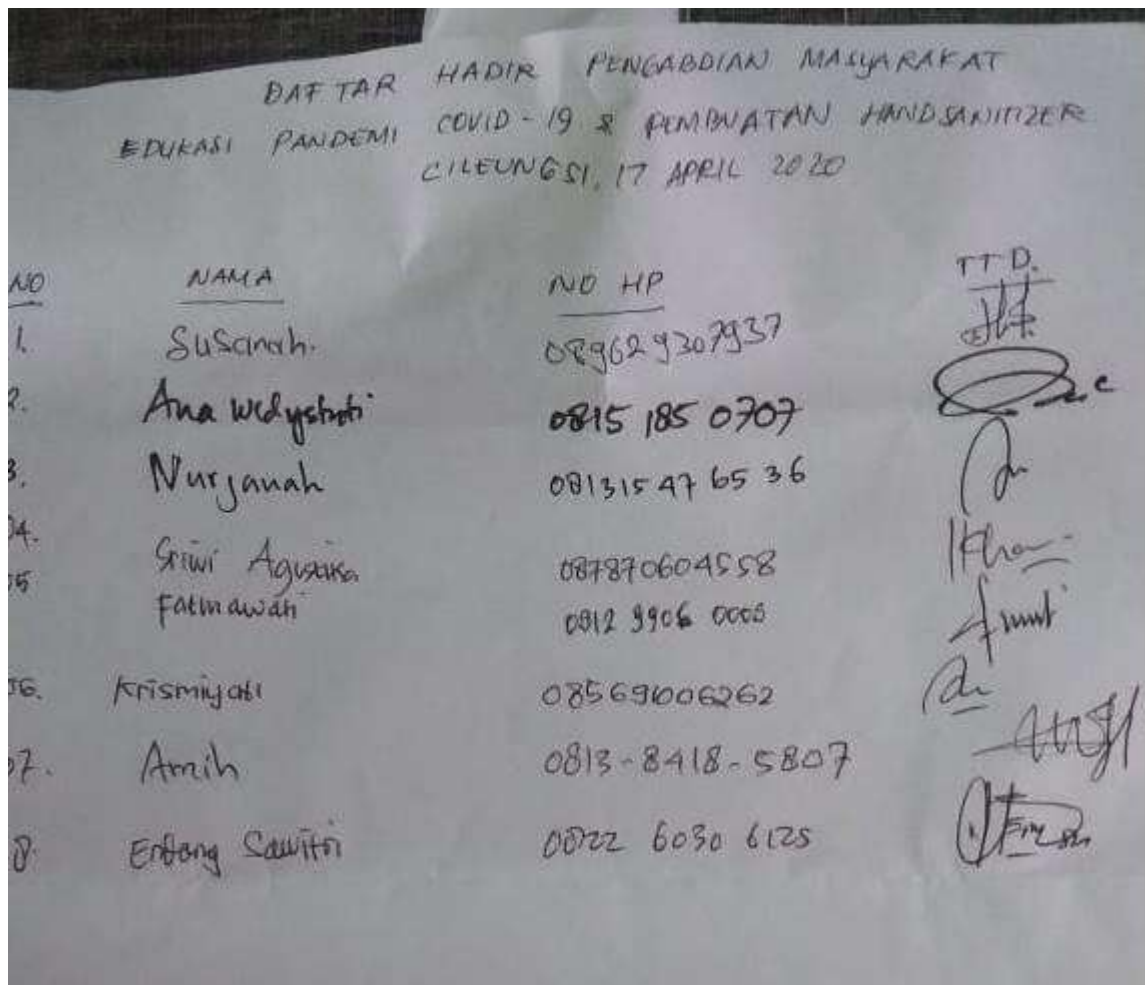 DAFTAR HADIR PENGABDIAN MASYARAKAT
EDUKASI PANDEMI COVID-19 & PEMBUATAN HANDSANITIZER
CILEUNGSI, 17 APRIL 2020
NO NAMA NO HP TTD.
1. Susanah. 089629307937
2. Ana 0815 185 0707
3. Nurjanah 081315 47 65 36
04. Sriwi 087870604558
05 Fatmawati 0812 9906 0005
06. Krismiyati 08569006262
07. Amih 0813-8418-5807
8. Endang Sawitri 0822 6030 6125